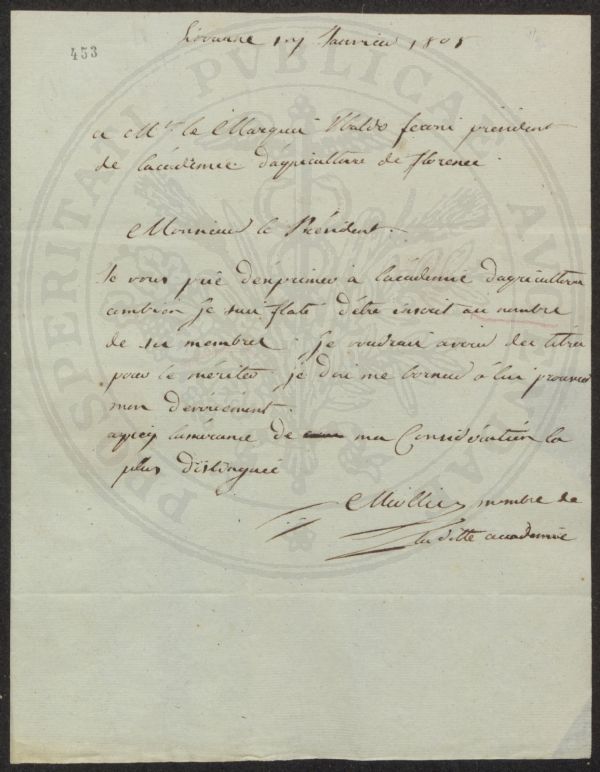 453
Livourne 17 Janvier 1808
a Mr. le Marquis Ubaldo feroni président
de l'académie d'agriculture de florence.
Monsieur le Président.
Je vous prie d'exprimer à l'académie d'agriculture
combien je suis flaté d'être inscrit au nombre
de ses membres; je voudrais avoir des titres
pour le mériter je dois me borner à lui prouver
mon dévouement.
agréez l'assurance de ma Considération la
plus distinguée
membre de
la ditte académie
PROSPERITATI PVBLICAE AVG